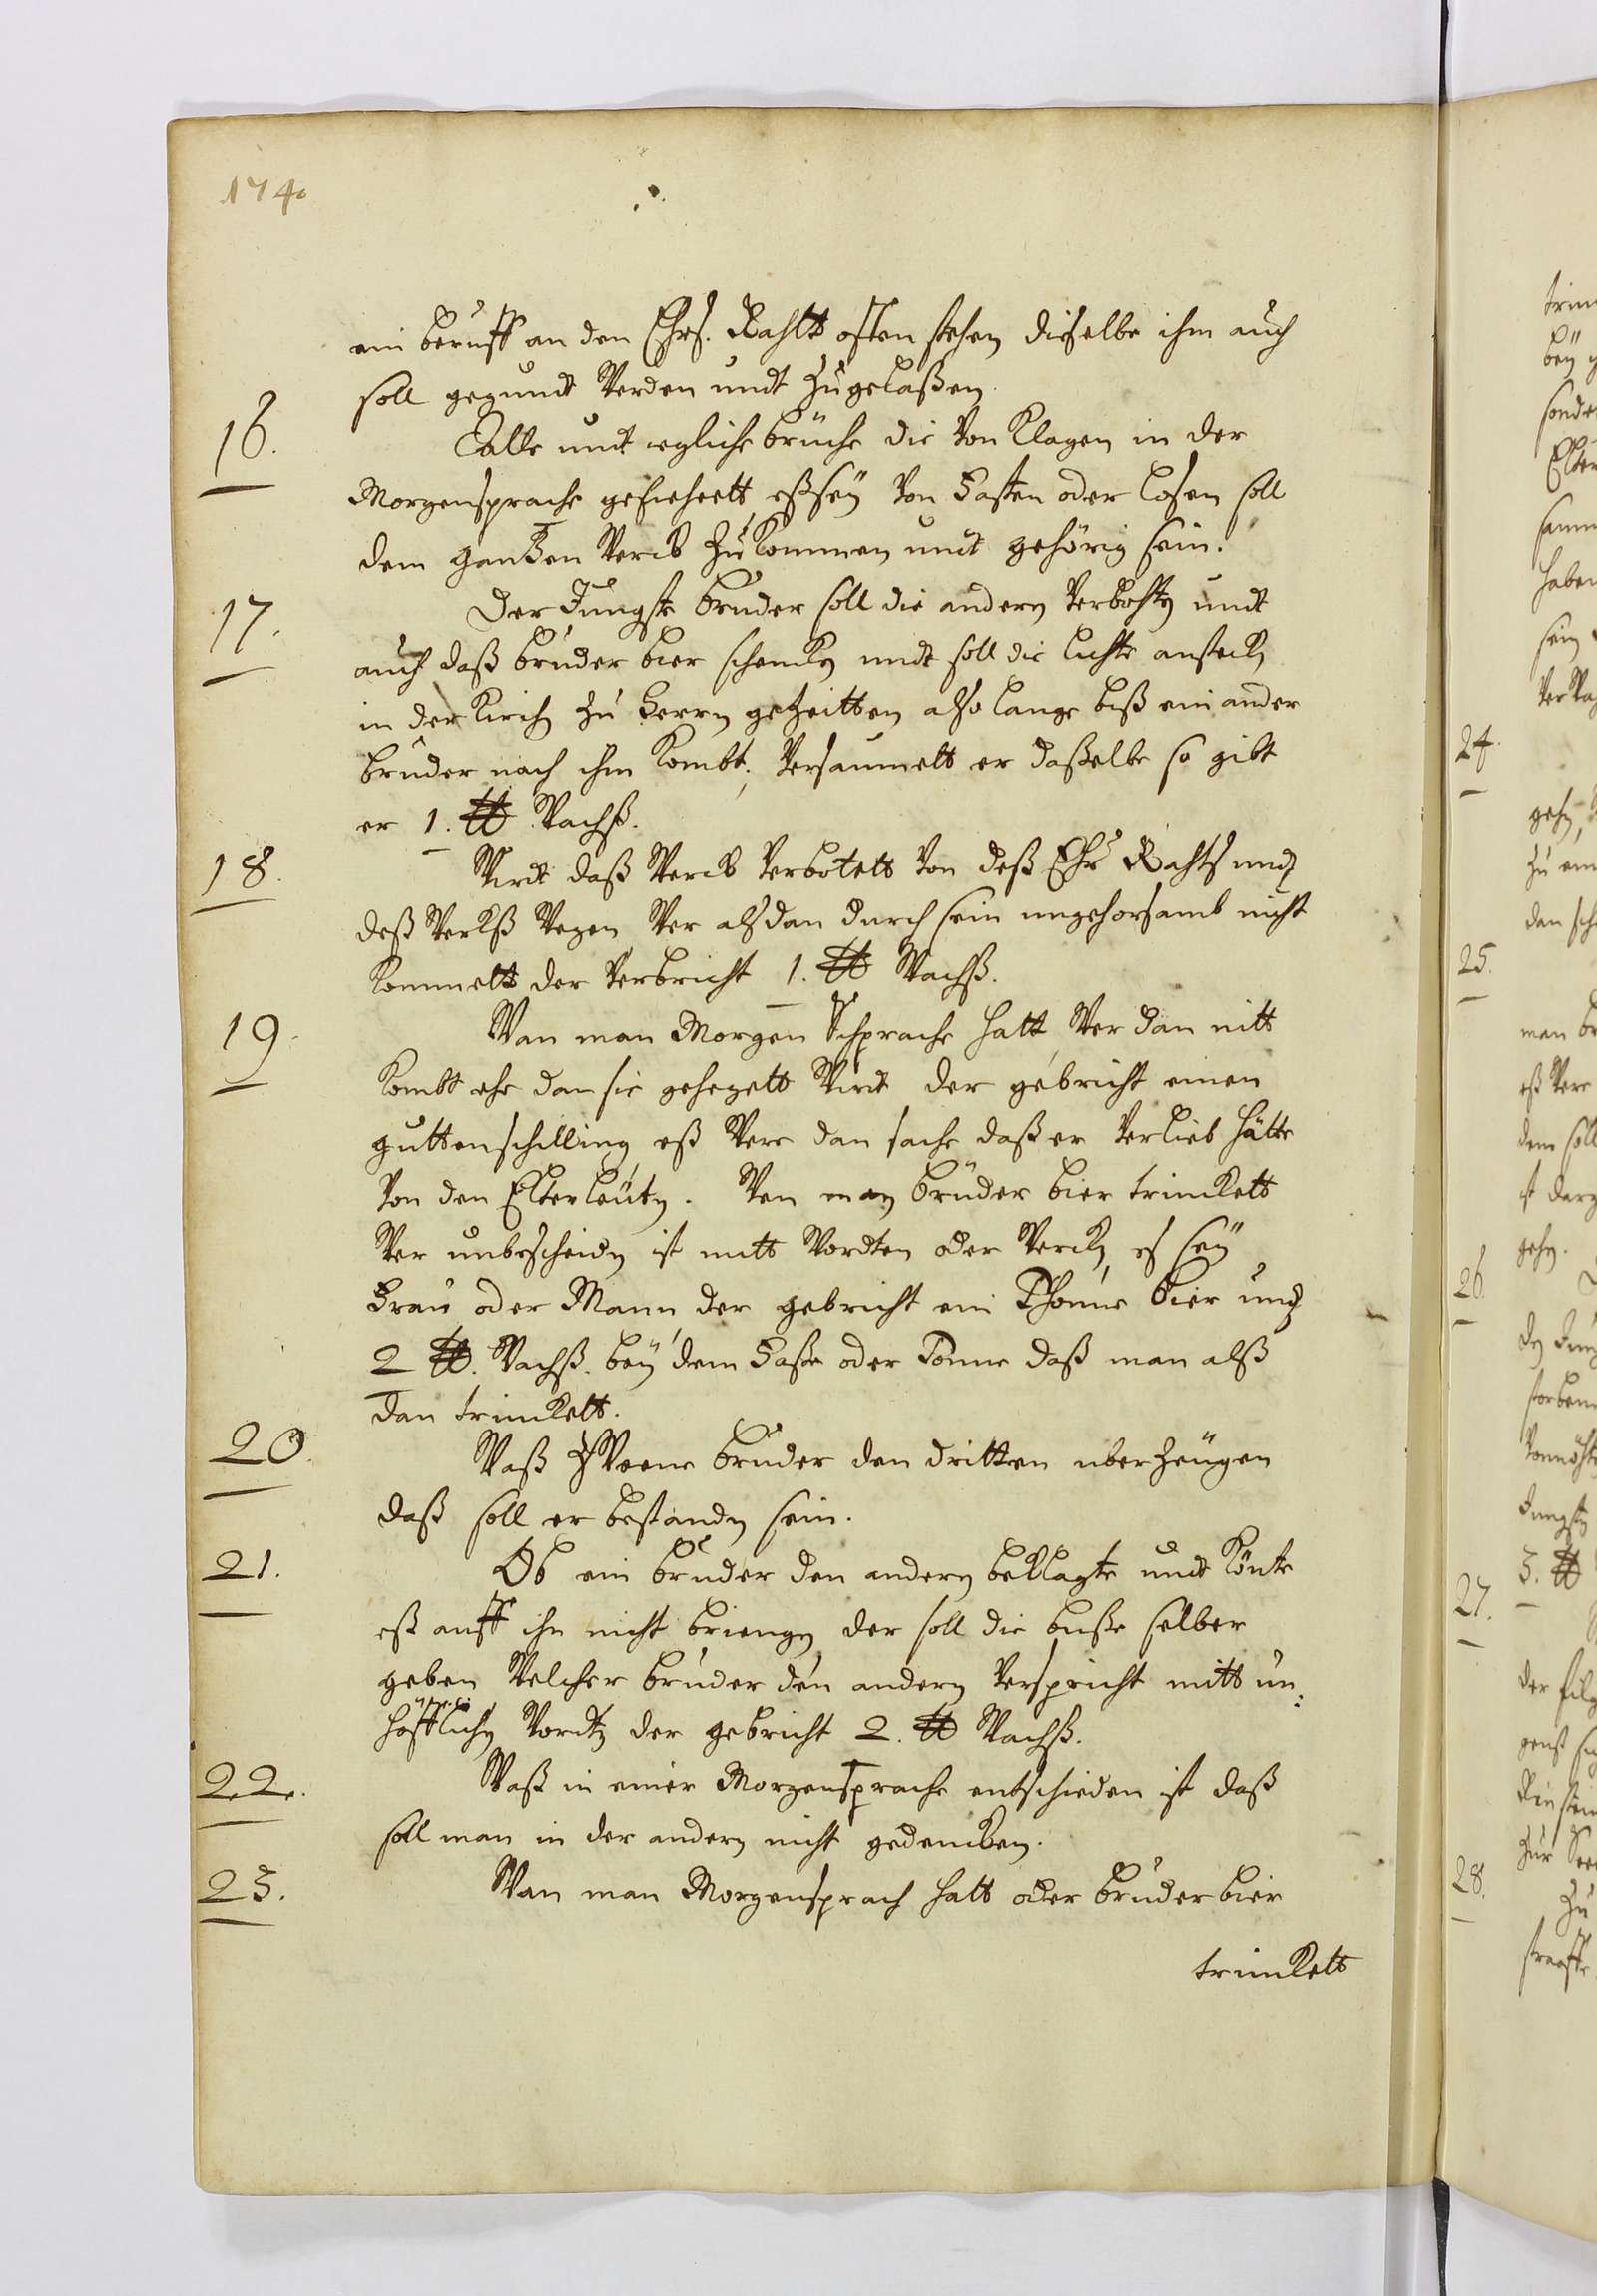 174.
ein beruff an den Ehrs. Rahtt offen stehen dieselbe ihm auch
soll gegundt Werden undt Zugelaßen.
16. Alle undt egliche brüche die Von Klagen in der
Morgensprache geschehett, eß seÿ Von Fasten oder losen soll
dem gantzen Werck Zukommen undt gehörig sein.
17. Der Jungste bruder soll die andern Verbohten undt
auch daß bruder bier schencken undt soll die lichte anstecken
in der Kirch Zu Herrn getzeitten also lange biß ein ander
bruder nach ihm Kombt, Versaumett er daßelbe so gibt
er 1. ℔ Wachß.
18. Wirdt daß Werck Verbotett Von deß Ehr Rahts und
deß Werckß Wegen Wer alsdan durch sein ungehorsamb nicht
Kommett der Verbricht 1. ℔ Wachß.
19. Wan man Morgen Schprache hatt, Wer dan nitt
Kombt ehe dan sie gehegett Wirdt der gebricht einen
gutten schilling eß Were dan sache daß er Verlieb hätte
Von den Elterleuten. Wen man brüder bier trinckett
Wer unbescheiden ist mitt Wordten oder Wercken es seÿ
Frau oder Mann, der gebricht ein Thonne bier und
2 ℔. Wachß. beÿ dem Faße oder Tonne daß man alß
dan trinckett.
20. Waß ZWeene brüder den dritten uberzeugen
daß soll er bestanden sein.
21. Ob ein bruder den andern beklagte undt Könte
eß auff ihn nicht briengen der soll die buße selber
geben Welcher bruder den andern Verspricht mitt un:
höfflichen Wordten der gebricht 2. ℔ Wachß.
22. Waß in einer Morgensprache entschieden ist daß
soll man in der andern nicht gedencken.
23. Wan man Morgensprach hatt oder bruder bier
trinckett
24.
25.
26.
27.
28.